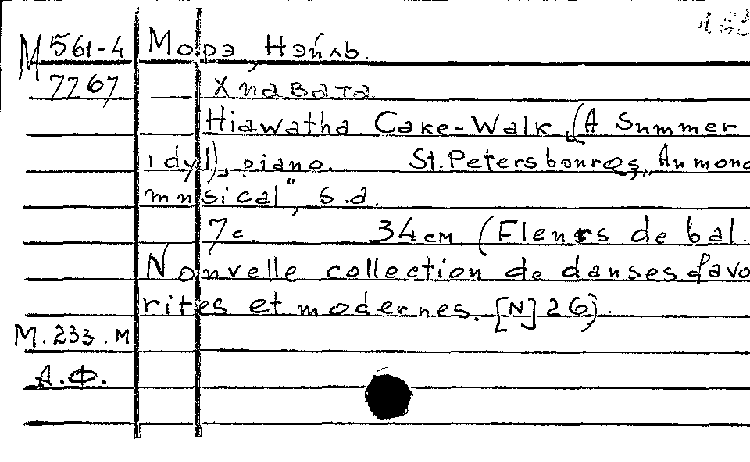 М 561-4 Морэ, Нэйль.
7767 Хиавата
Hiawatha Cake-Walk (A Summer
idyl), piano. St. Petersbourg, "Au mond
musical", s.d.
7с. 34 см (Fleurs de bal.
Nouvelle collection de danses favo
rites et modernes. [N] 26).
М. 233. м
А.Ф.